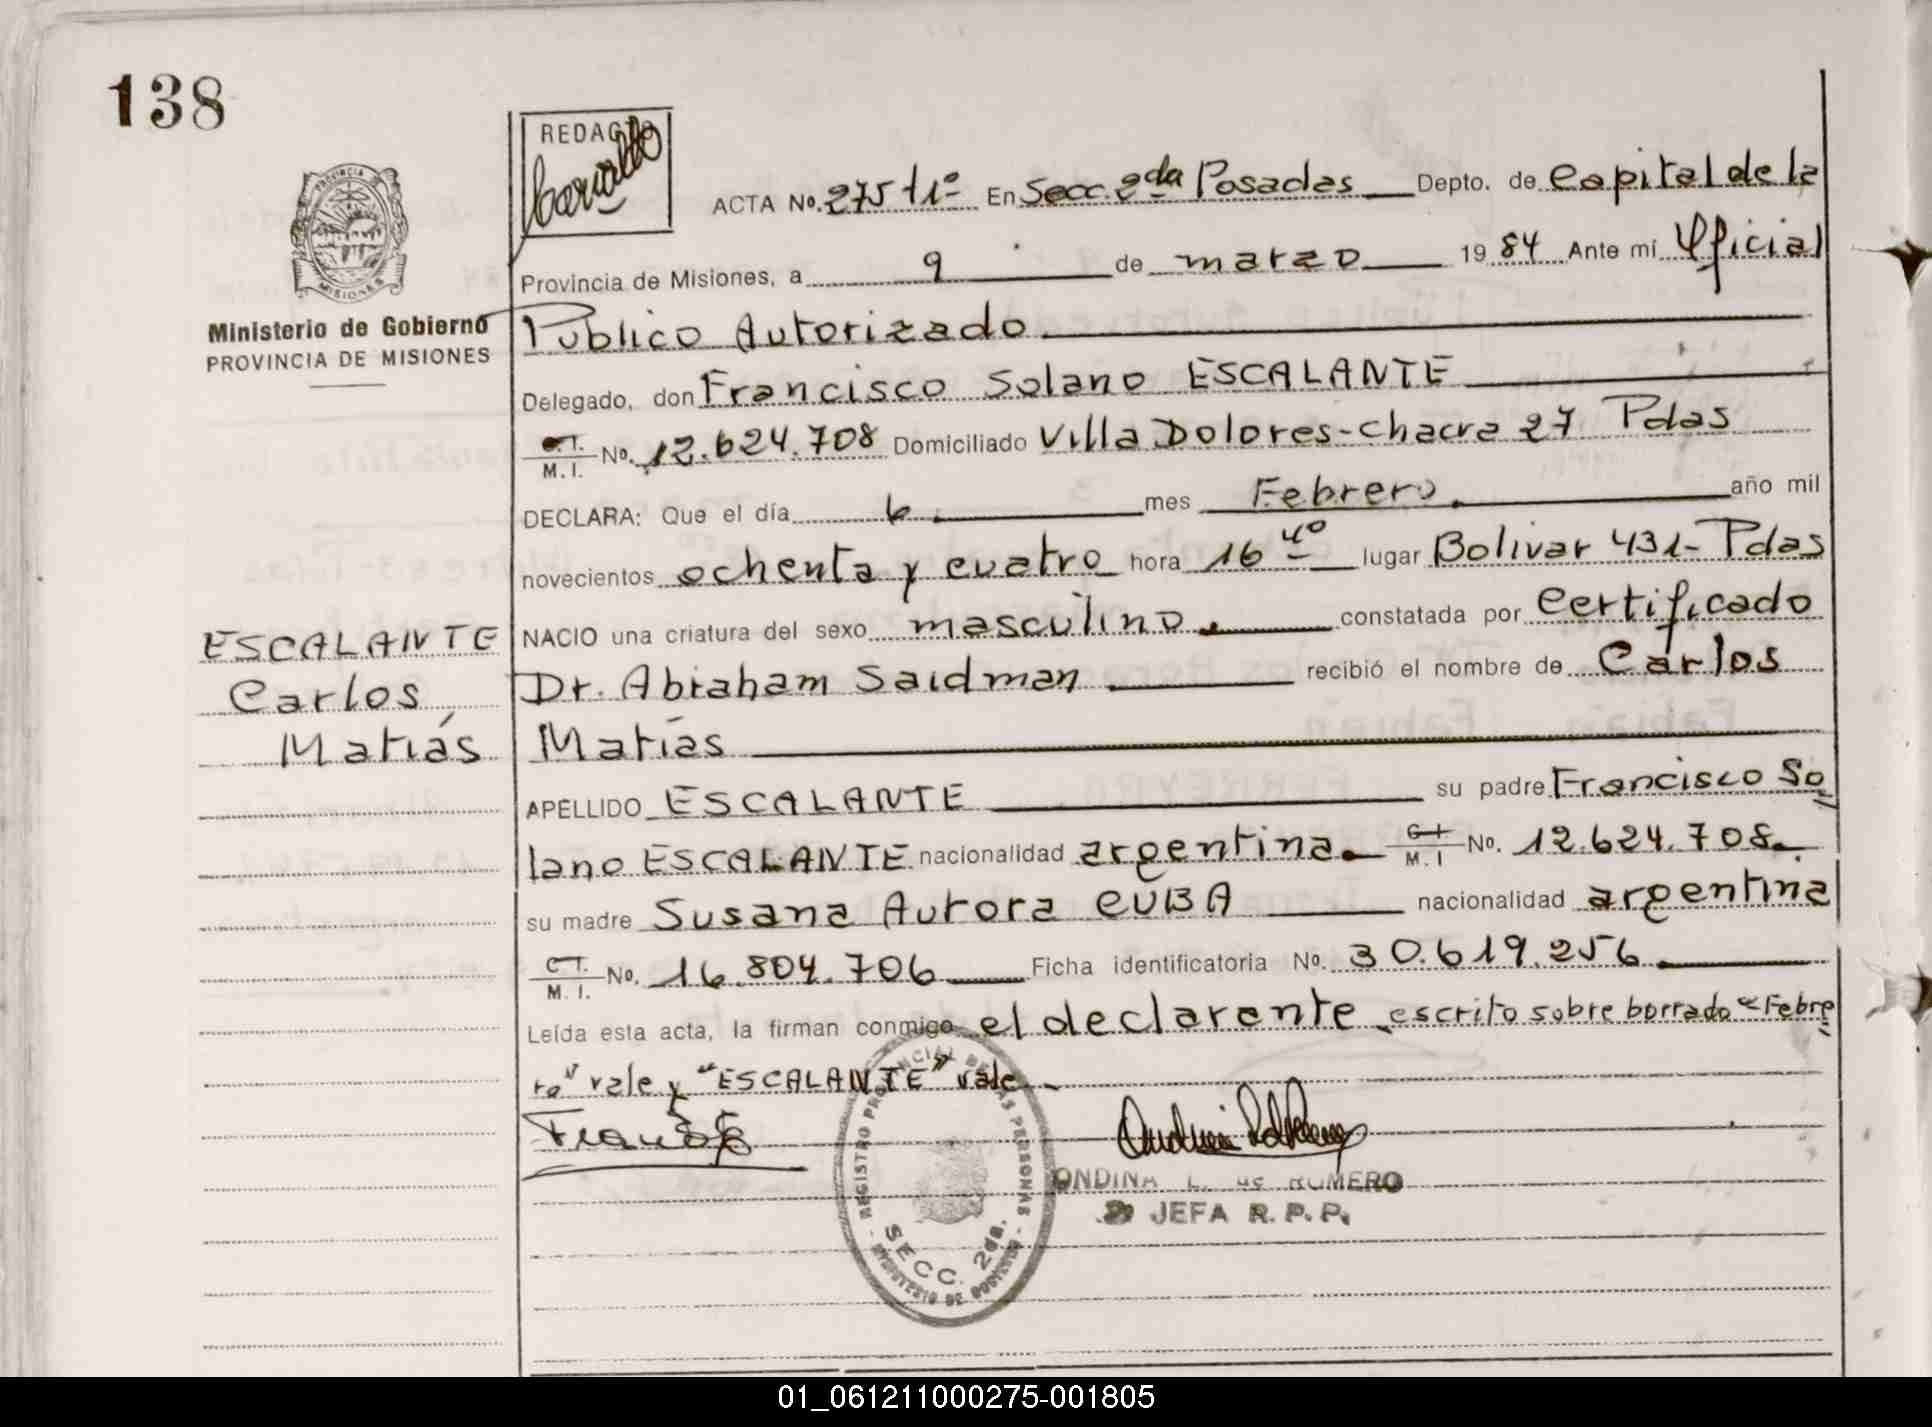 138
REDACTO
ACTA No. 275 t1º En Secc. 2da Posadas Depto. de Capital de la
Provincia de Misiones, a 9 de marzo 1984 Ante mí Oficial
PROVINCIA
MISIONES
Ministerio de Gobierno
PROVINCIA DE MISIONES
Público Autorizado
Delegado, don Francisco Solano ESCALANTE
C.I.
M.I. No. 12.624.708 Domiciliado Villa Dolores-chacra 27 Pdas
DECLARA: Que el día 6 mes Febrero año mil
novecientos ochenta y cuatro hora 16 40 lugar Bolivar 431- Pdas
ESCALANTE
Carlos
Matías
NACIO una criatura del sexo masculino constatada por certificado
Dr. Abraham Saidman recibió el nombre de Carlos
Matías
APELLIDO ESCALANTE su padre Francisco So
lano ESCALANTE nacionalidad argentina C.I.
M.I No. 12.624.708.
su madre Susana Aurora CUBA nacionalidad argentina
C.I.
M.I. No. 16.804.706 Ficha identificatoria No. 30.619.256
Leída esta acta, la firman conmigo el declarante escrito sobre borrado "Febre
ro" vale y "ESCALANTE" vale
REGISTRO PROVINCIAL DE LAS PERSONAS
SECC. 2da.
MINISTERIO DE GOBIERNO
ONDINA L. de ROMERO
JEFA R.P.P.
01_061211000275-001805